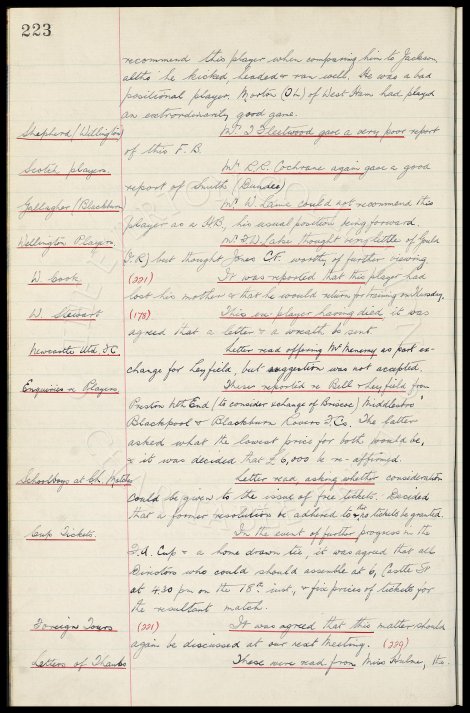 223
recommend this player when comparing him to Jackson,
altho' he kicked headed & ran well. He was a bad
positional player. Morton (OL) of West Ham had played
an extraordinarily good game.
Shepherd/Wellington Mr. T. Fleetwood gave a very poor report
of this F.B.
Scotch players. Mr R.R. Cochrane again gave a good
report of Smith (Dundee)
Gallagher/Blackburn Mr W. Laine could not recommend this
player as a H.B, his usual position being forward.
Wellington Players. Mr F.W. Lake thought very little of Gould
I.R) but thought Jones C.F. worthy of further viewing
W Cook. (221) It was reported that this player had
lost his mother & that he would return for training on Thursday.
W. Stewart (178) This ex player having died it was
agreed that a letter & a wreath be sent.
Newcastle Utd. F.C. Letter read offering Mr Menemy as part ex-
change for Leyfield, but suggestion was not accepted.
Enquiries re Players These reported re Bell & Leyfield from
Preston Nth End (to consider exchange of Briscoe) Middlesbro'
Blackpool & Blackburn Rovers F.Cs. The latter
asked what the lowest price for both would be,
& it was decided that £6,000 be re-affirmed.
Schoolboys at Ch. Matches Letter read asking whether consideration
could be given to the issue of free tickets. Decided
that a former resolution be adhered to & no tickets be granted.
Cup Tickets. In the event of further progress in the
F.A. Cup & a home drawn tie, it was agreed that all
Directors who could should assemble at 6, Castle St
at 4.30 pm on the 18th inst, & fix prices of tickets for
the resultant match.
Foreign Tours (221) It was agreed that this matter should
again be discussed at our next Meeting. (229)
Letters of Thanks These were read from Miss Hulme, the